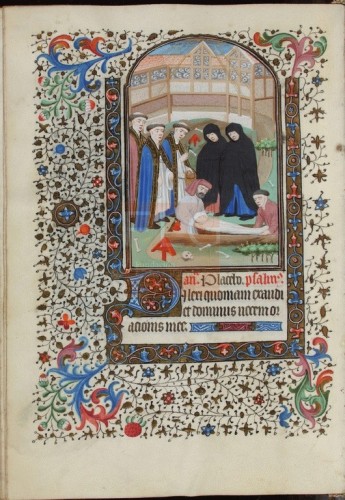 Placebo.
Dilexi quoniam exaudi
et dominus vocem or
acionis mee.